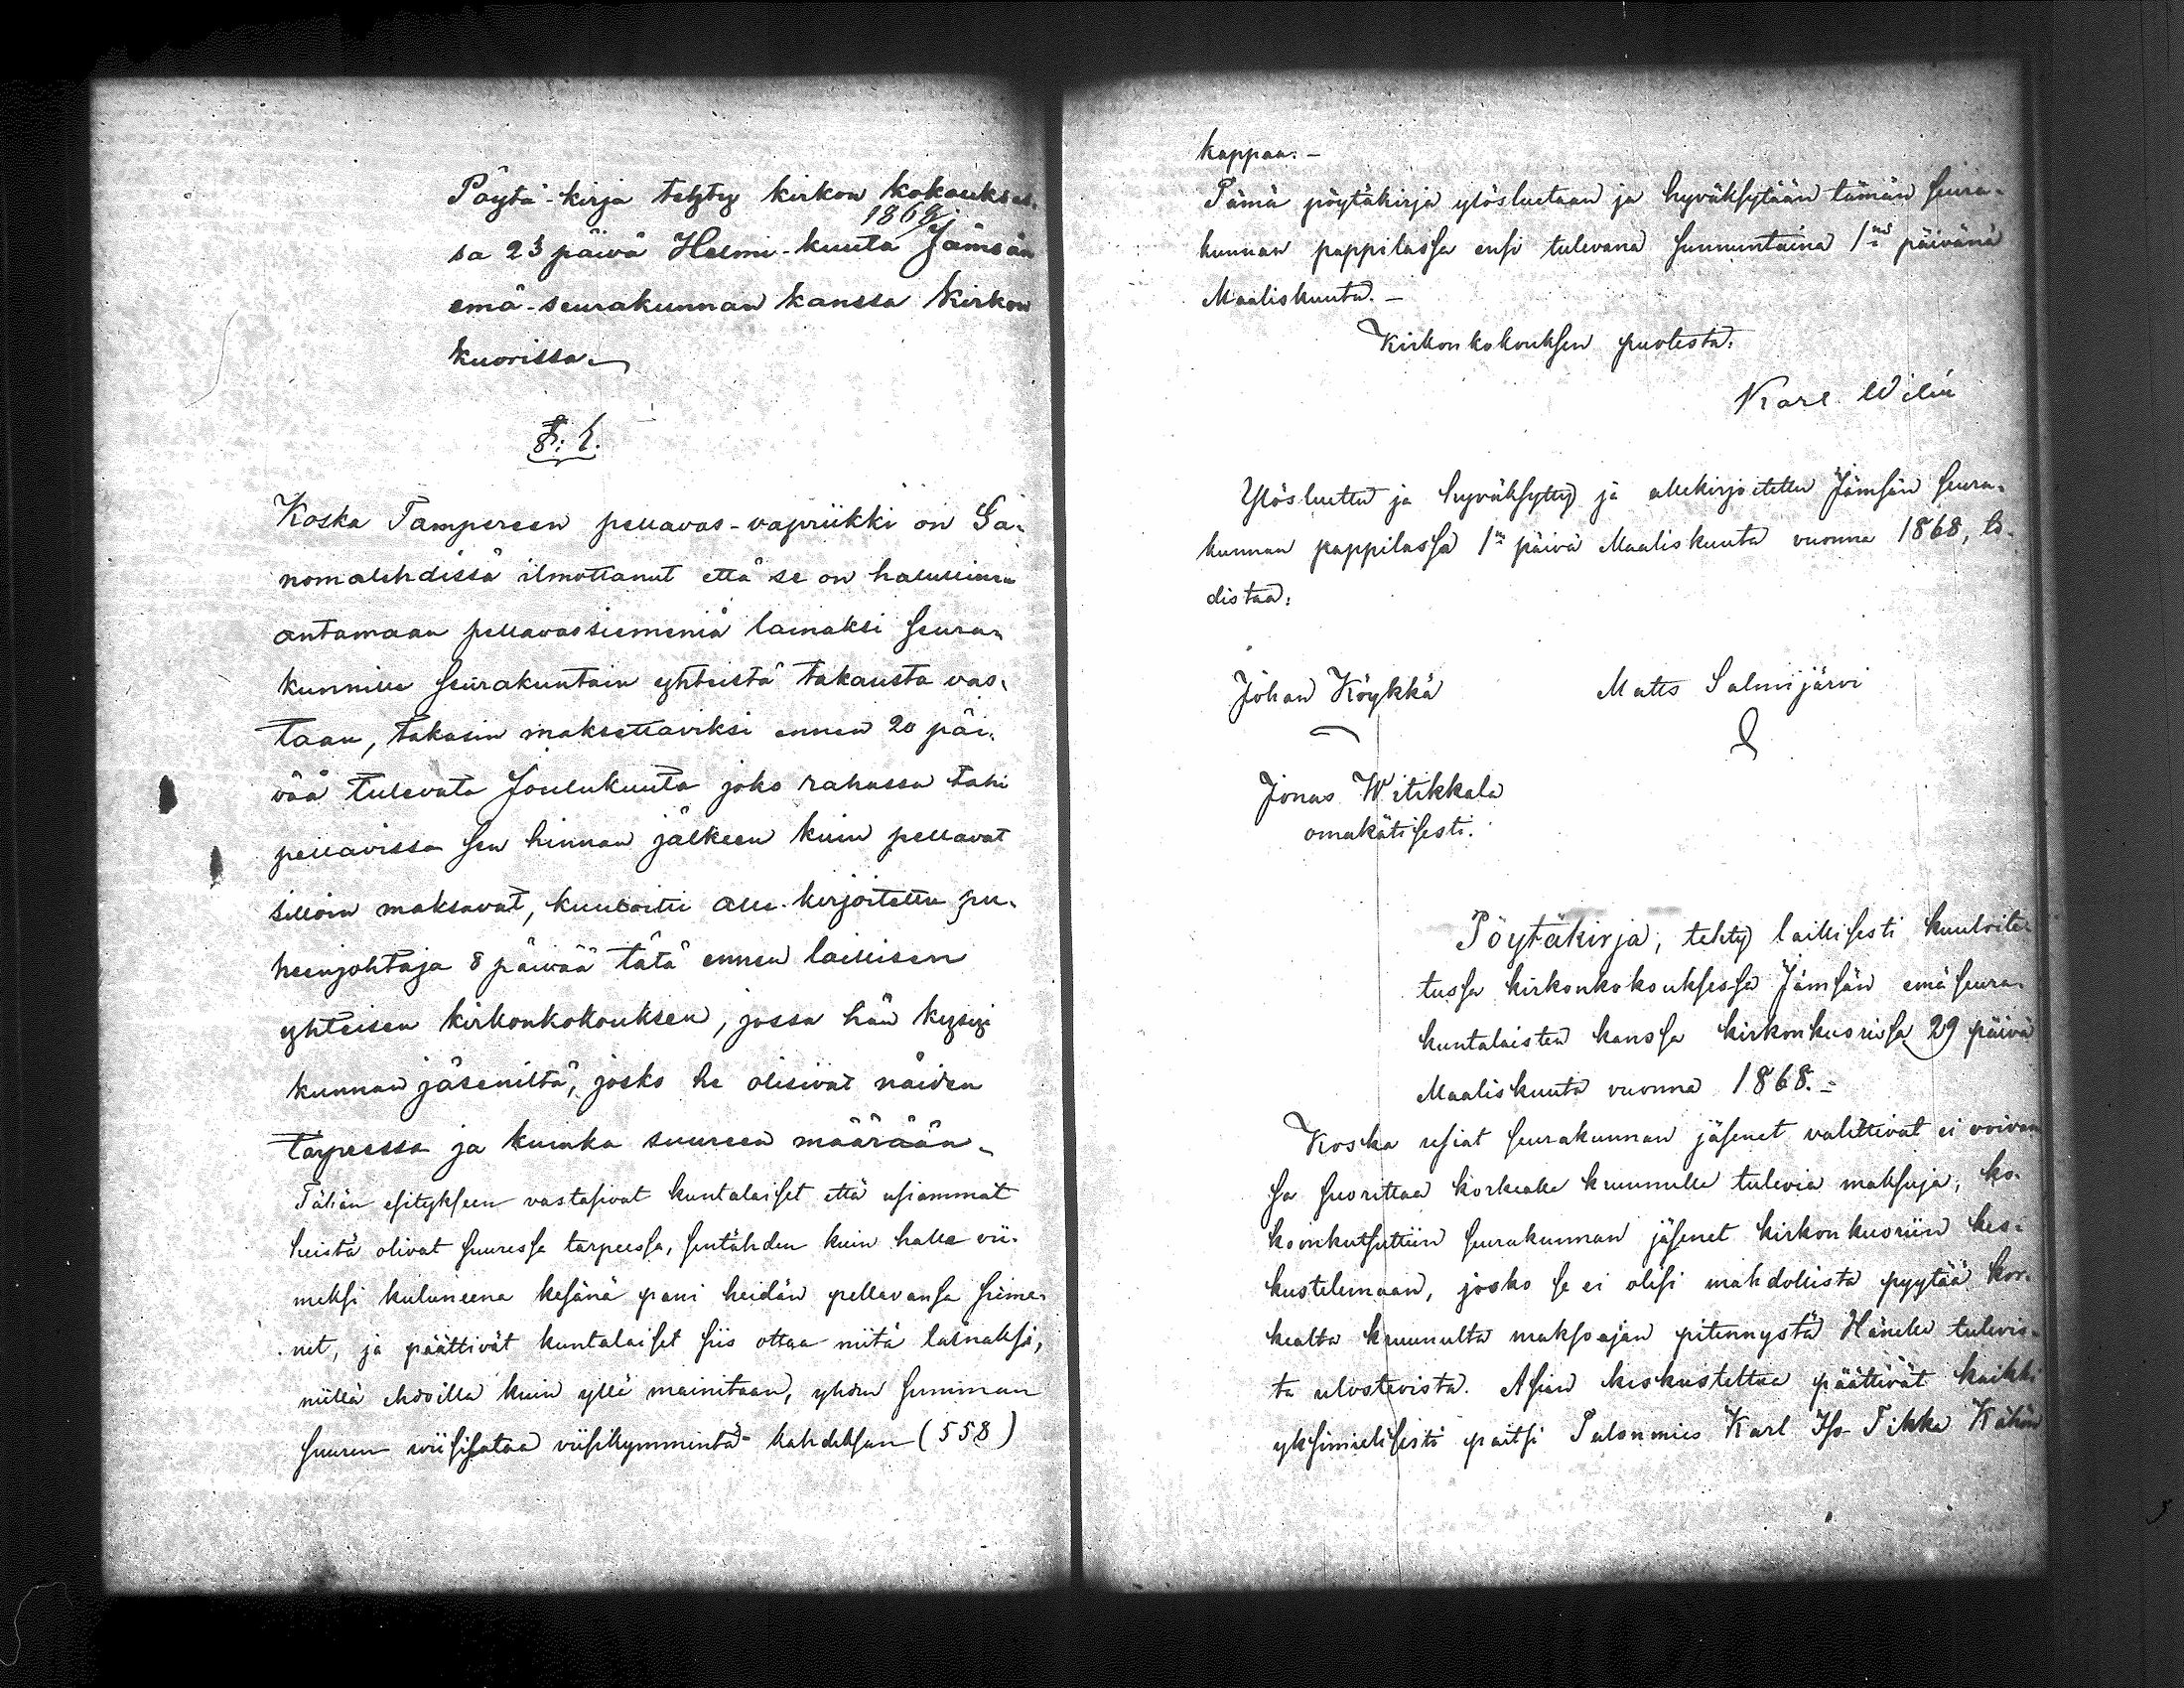 Pöytä-kirja tehty kirkon kokoukses-
1868
sa 23 päivä Helmi-kuuta Jämsän
emä-seurakunnan kanssa kirkon
kuorissa.
§. 1.
Koska Tampereen pellavas-vapriikki on Sa-
nomalehdissä ilmottanut että se on halullinen
antamaan pellavassiemeniä lainaksi seura-
kunnille seurakuntain yhteistä takausta vas-
taan, takasin maksettaviksi ennen 20 päi-
vää tulevata Joulukuuta joko rahassa tahi
pellavissa sen hinnan jälkeen kuin pellavat
silloin maksavat, kuuloitti alle-kirjoitettu pu-
heenjohtaja 8 päivää tätä ennen laillisen
yhteisen kirkonkokouksen, jossa hän kysyi
kunnan jäseniltä, josko he olisivat näiden
tarpeessa ja kuinka suureen määrään.
Tähän esitykseen vastasivat kuntalaiset että usiammat
heistä olivat suuressa tarpeessa, sentähden kuin halla vii-
meksi kuluneena kesänä pani heidän pellavansa sieme-
net, ja päättivät kuntalaiset siis ottaa niitä lainaksi,
niillä ehdoilla kuin yllä mainitaan, yhden summan
suuren wiisisataa viisikymmentä-kahdeksan (558)
kappaa.-
Tämä pöytäkirja ylösluetaan ja hyväksytään tämän seura-
kunnan pappilassa ensi tulevana sunnuntaina 1nä päivänä
Maaliskuuta.-
Kirkonkokouksen puolesta.
Karl Wilén
Ylösluettu ja hyväksytty ja allekirjoitettu Jämsän seura-
kunnan pappilassa 1nä päivä Maaliskuuta vuonna 1868, to-
distaa:
Johan Köykkä Matts Salmijärvi
Jonas Witikkala
omakätisesti.
Pöytäkirja, tehty laillisesti kuuloite-
tussa kirkonkokouksessa Jämsän emäseura-
kuntalaisten kanssa kirkonkuorissa 29 päivä
Maaliskuuta vuonna 1868.-
Koska usiat seurakunnan jäsenet valittivat ei voivan
sa suorittaa korkealle kruunulle tulevia maksuja, ko-
koonkutsuttiin seurakunnan jäsenet kirkonkuoriin kes-
kustelemaan, josko se ei olisi mahdollista pyytää kor-
kealta kruunulta maksoajan pitennystä Hänelle tulevis-
ta ulosteoista. Asian keskusteltua päättivät kaikki
yksimielisesti paitsi Talonmies Karl Tikka